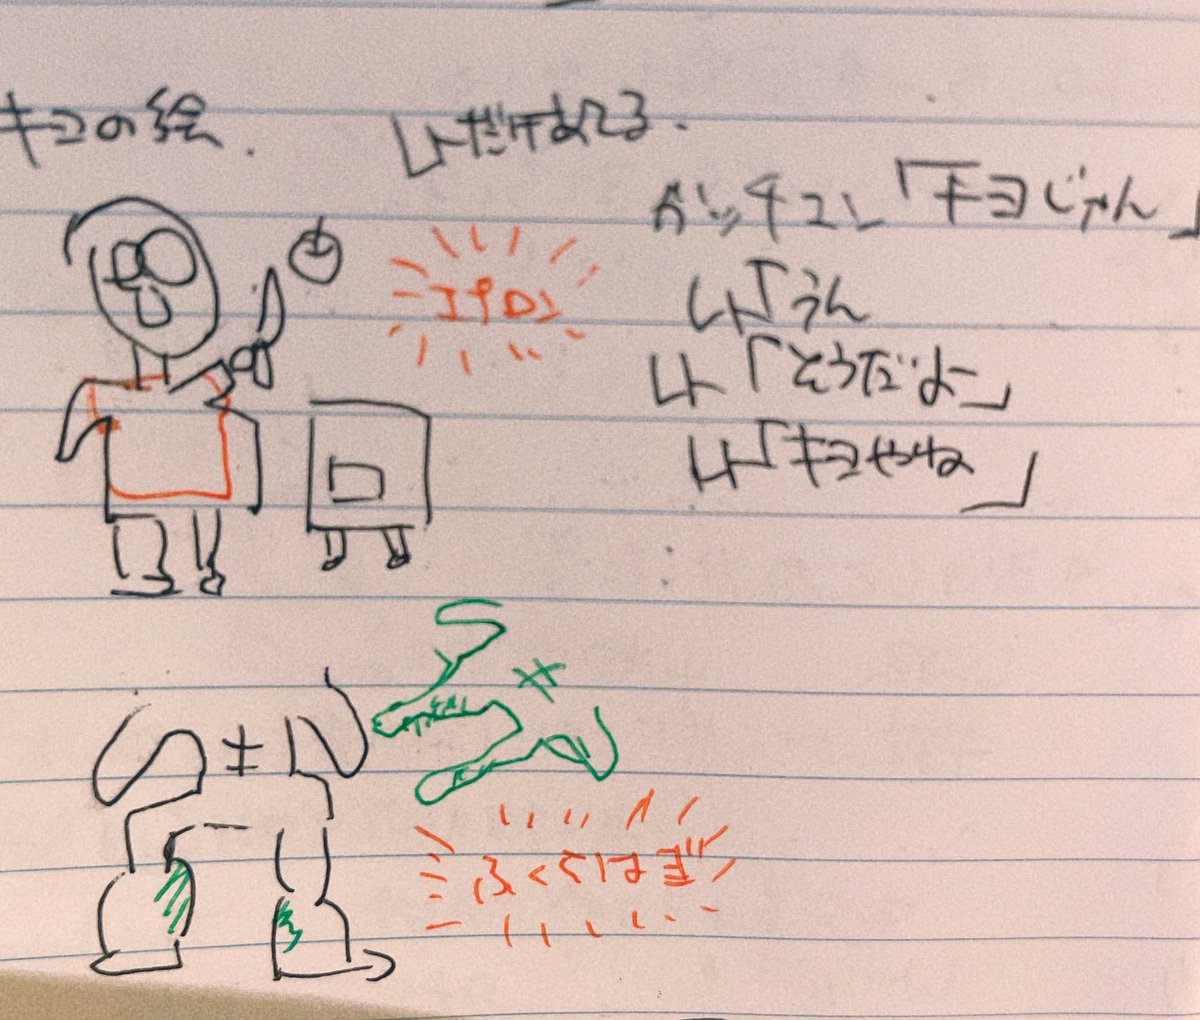 キヨの絵.
レトだけまてる.
ガッチュン「キヨじゃん」
レト「うん
レト「そうだよー」
レト「キヨやね」
エプロン
キ
ふくらはぎ